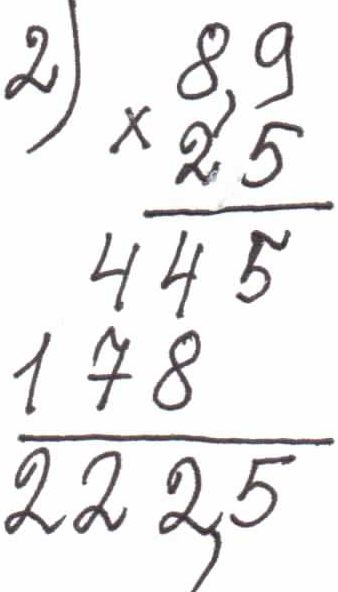 2) 8,9
× 25
445
178
222,5